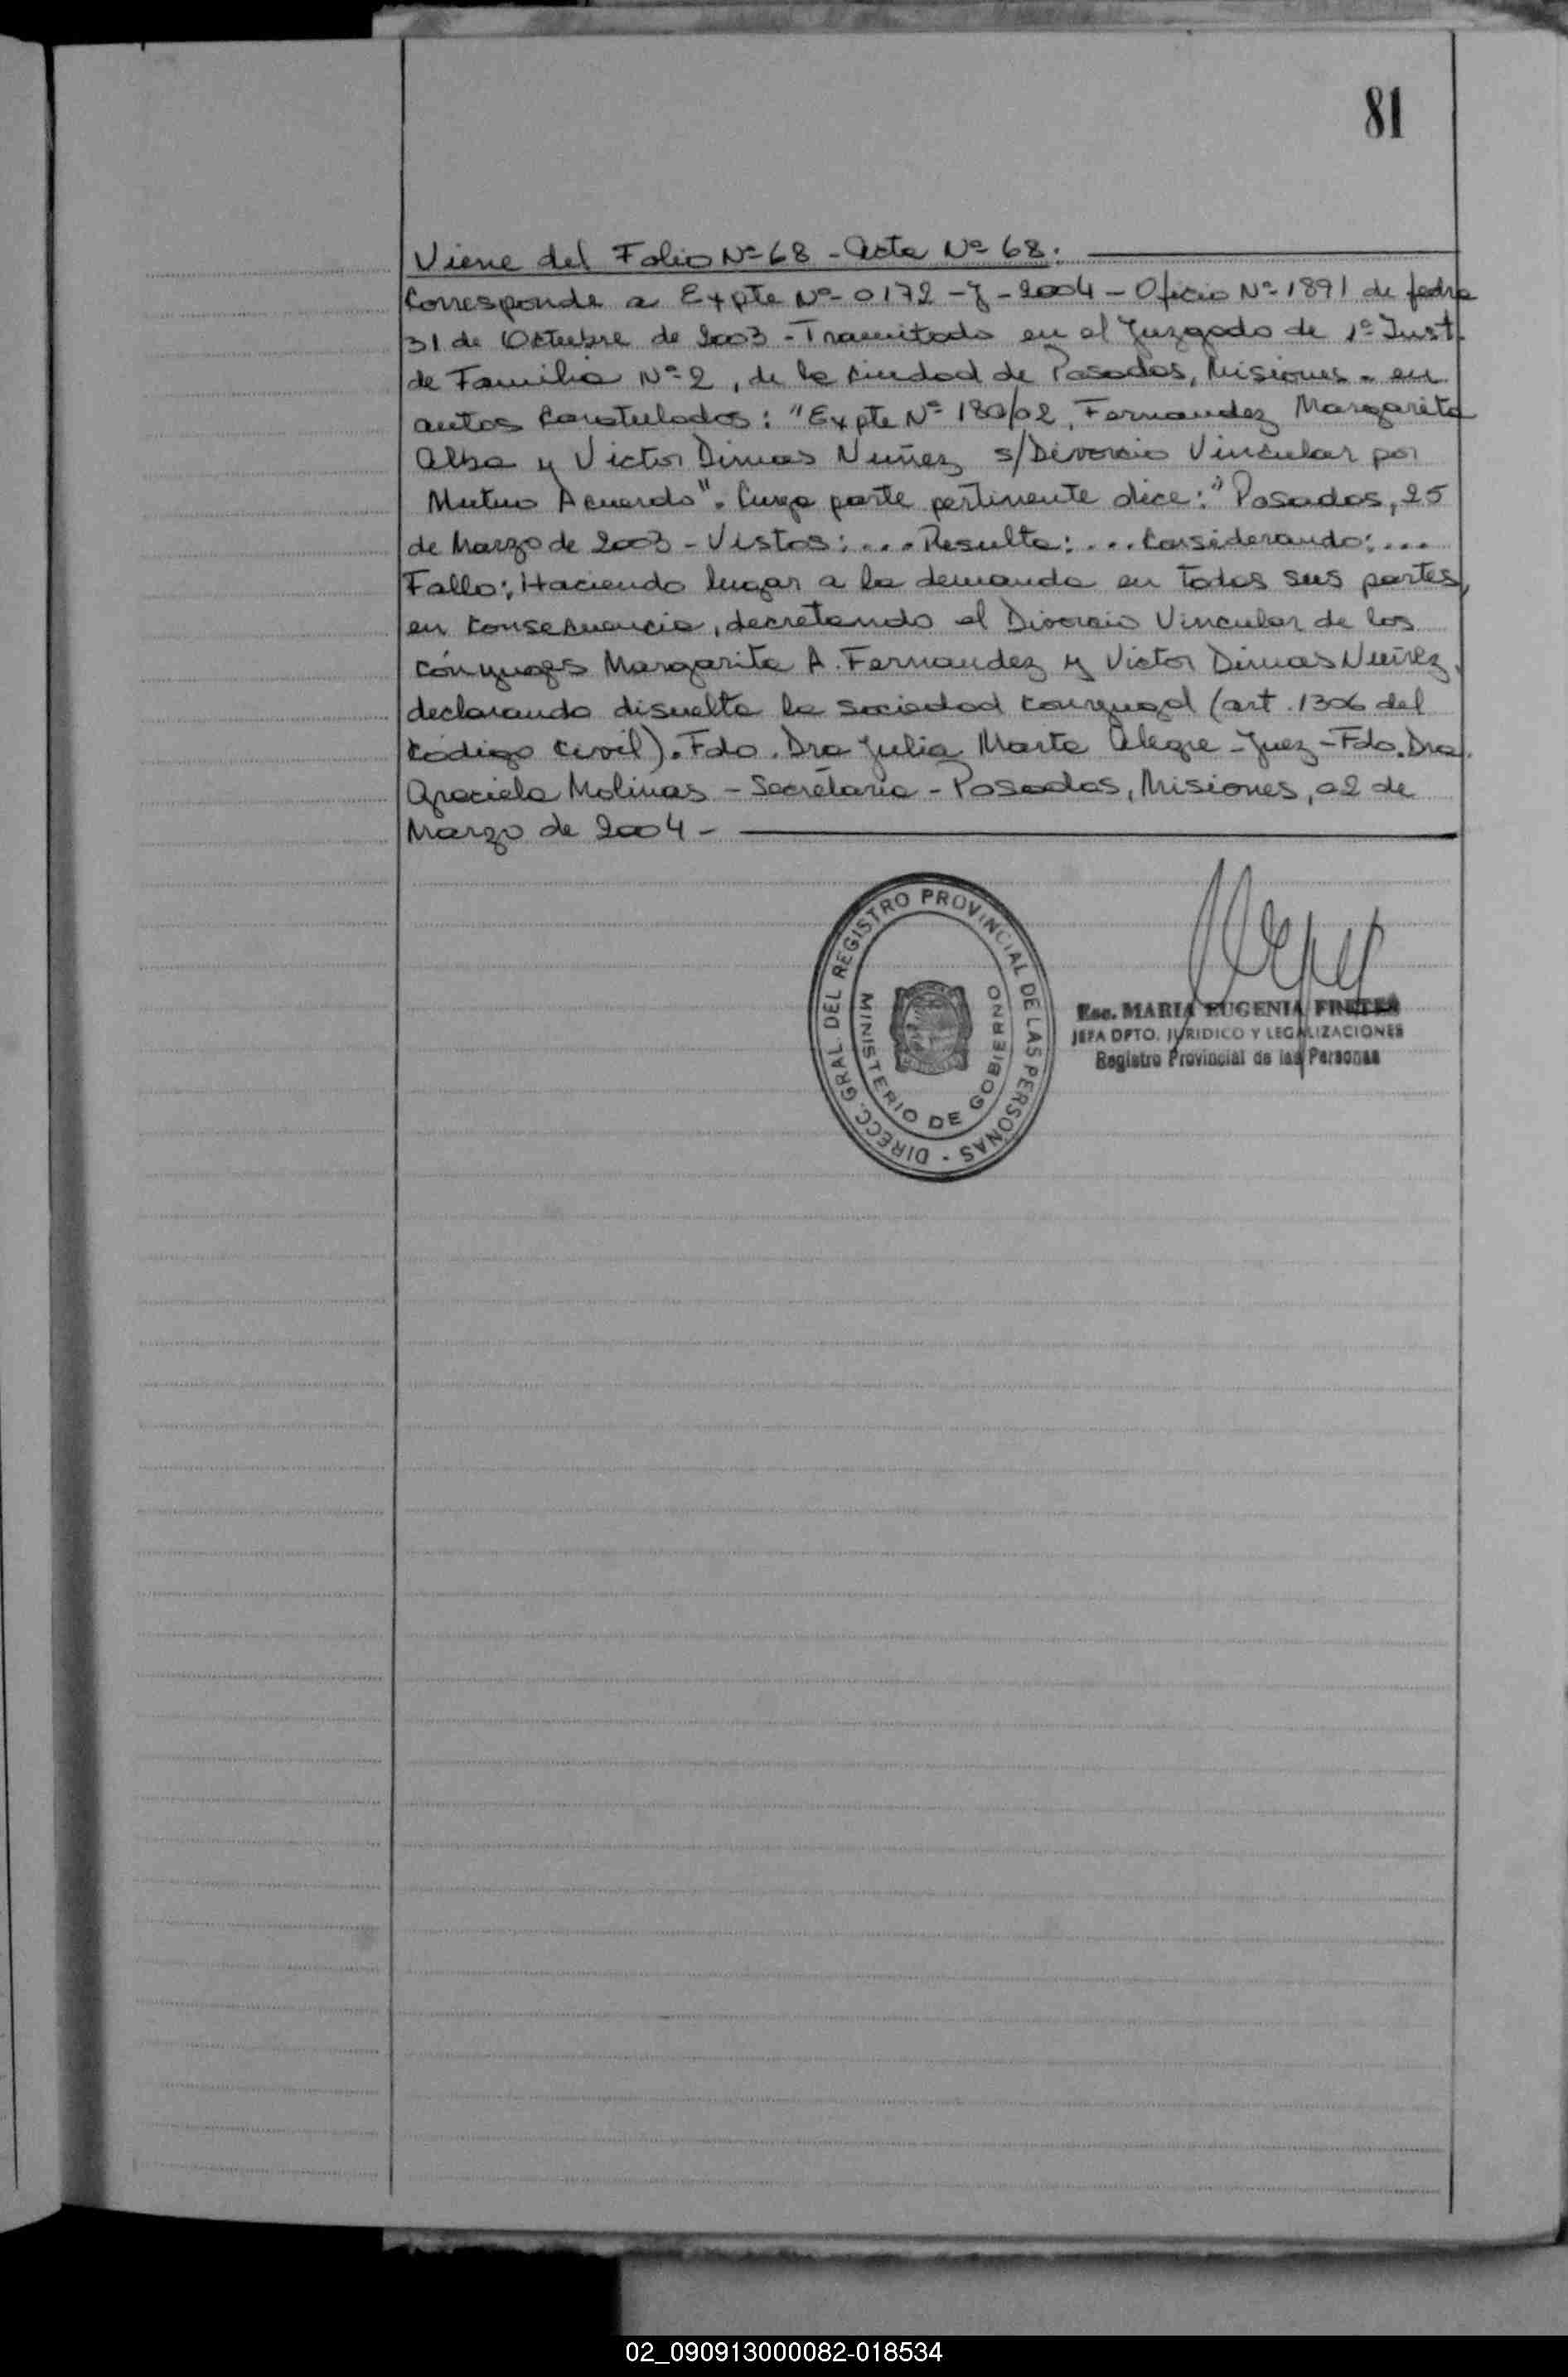 81
Viene del Folio Nº 68 - Acta Nº 68.
Corresponde a Expte Nº 0172 - J - 2004 - Oficio Nº 1891 de fecha
31 de Octubre de 2003 - Tramitado en el Juzgado de 1º Inst.
de Familia Nº 2, de la ciudad de Posadas, Misiones - en
autos caratulados: "Expte Nº 180/02, Fernandez Margarita
Alba y Victor Dimas Nuñez s/Divorcio Vincular por
Mutuo Acuerdo". Cuya parte pertinente dice: "Posadas, 25
de Marzo de 2003 - Vistos: ... Resulta: ... Considerando: ...
Fallo: Haciendo lugar a la demanda en todas sus partes,
en consecuencia, decretando el Divorcio Vincular de los
cónyuges Margarita A. Fernandez y Victor Dimas Nuñez,
declarando disuelta la sociedad conyugal (art. 1306 del
código civil). Fdo. Dra Julia Marta Alegre - Juez - Fdo. Dra.
Graciela Molinas - Secretaria - Posadas, Misiones, 02 de
Marzo de 2004 -
DIRECC. GRAL. DEL REGISTRO PROVINCIAL DE LAS PERSONAS -
MINISTERIO DE GOBIERNO
Esc. MARIA EUGENIA FRETES
JEFA DPTO. JURIDICO Y LEGALIZACIONES
Registro Provincial de las Personas
02_090913000082-018534